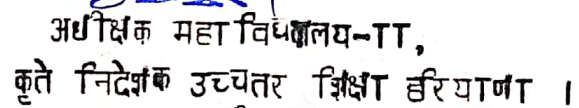 अधीक्षक महाविद्यालय-TT,
कृते निदेशक उच्चतर शिक्षा हरियाणा ।